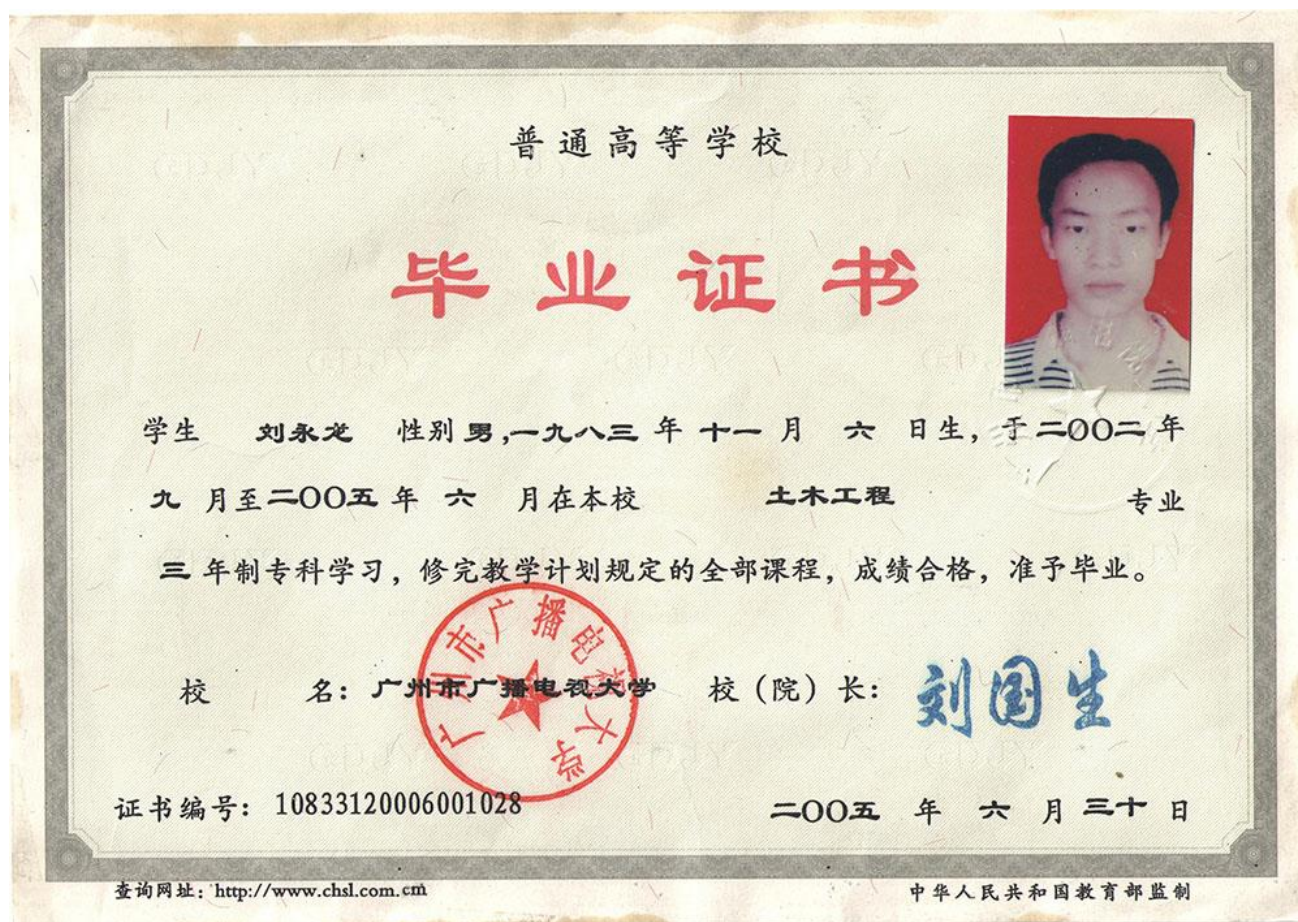 普通高等学校
毕业证书
学生 刘永龙 性别 男,一九八三 年 十一 月 六 日生，于 二〇〇二 年
九 月至 二〇〇五 年 六 月在本校 土木工程 专业
三 年制专科学习，修完教学计划规定的全部课程，成绩合格，准予毕业。
广州市广播电视大学
校 名：广州市广播电视大学 校（院）长：刘国生
证书编号：10833120006001028 二〇〇五 年 六 月 三十 日
查询网址：http://www.chsl.com.cm 中华人民共和国教育部监制